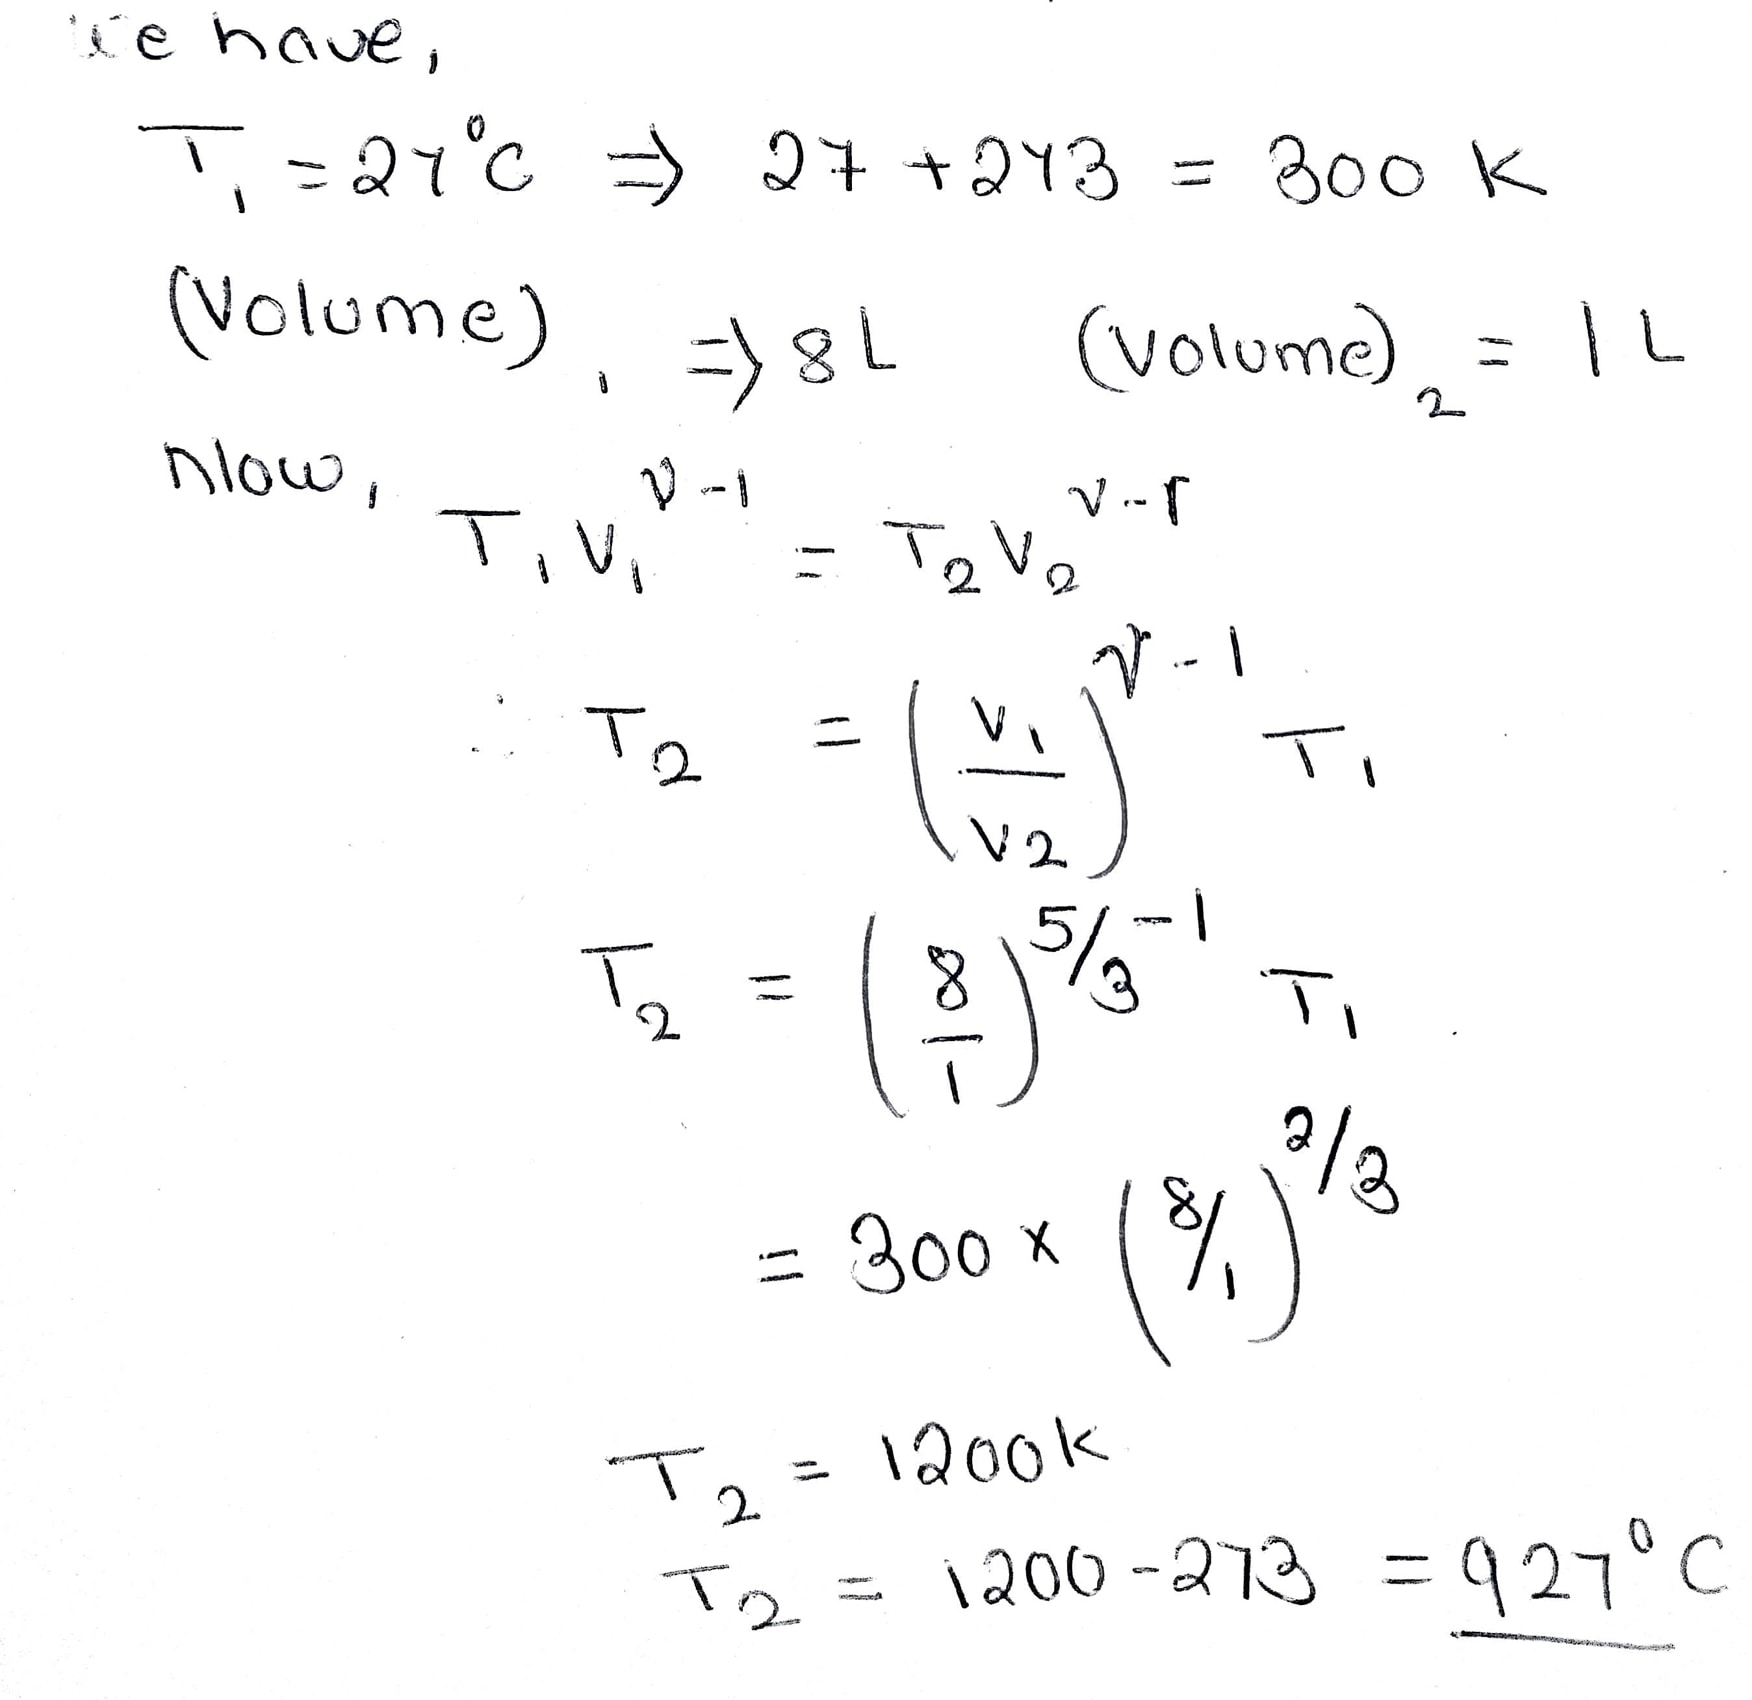 We have,
T₁ = 27°C ⇒ 27 + 273 = 300 K
(Volume)₁ ⇒ 8L (Volume)₂ = 1 L
Now, T₁V₁^γ-1 = T₂V₂^γ-1
∴ T₂ = (V₁/V₂)^γ-1 T₁
T₂ = (8/1)^5/3-1 T₁
= 300 × (8/1)^2/3
T₂ = 1200K
T₂ = 1200-273 = 927°C